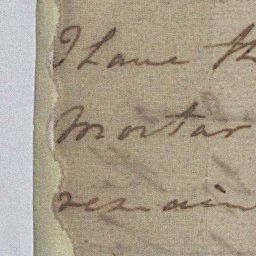 I have th
Mortar
remain